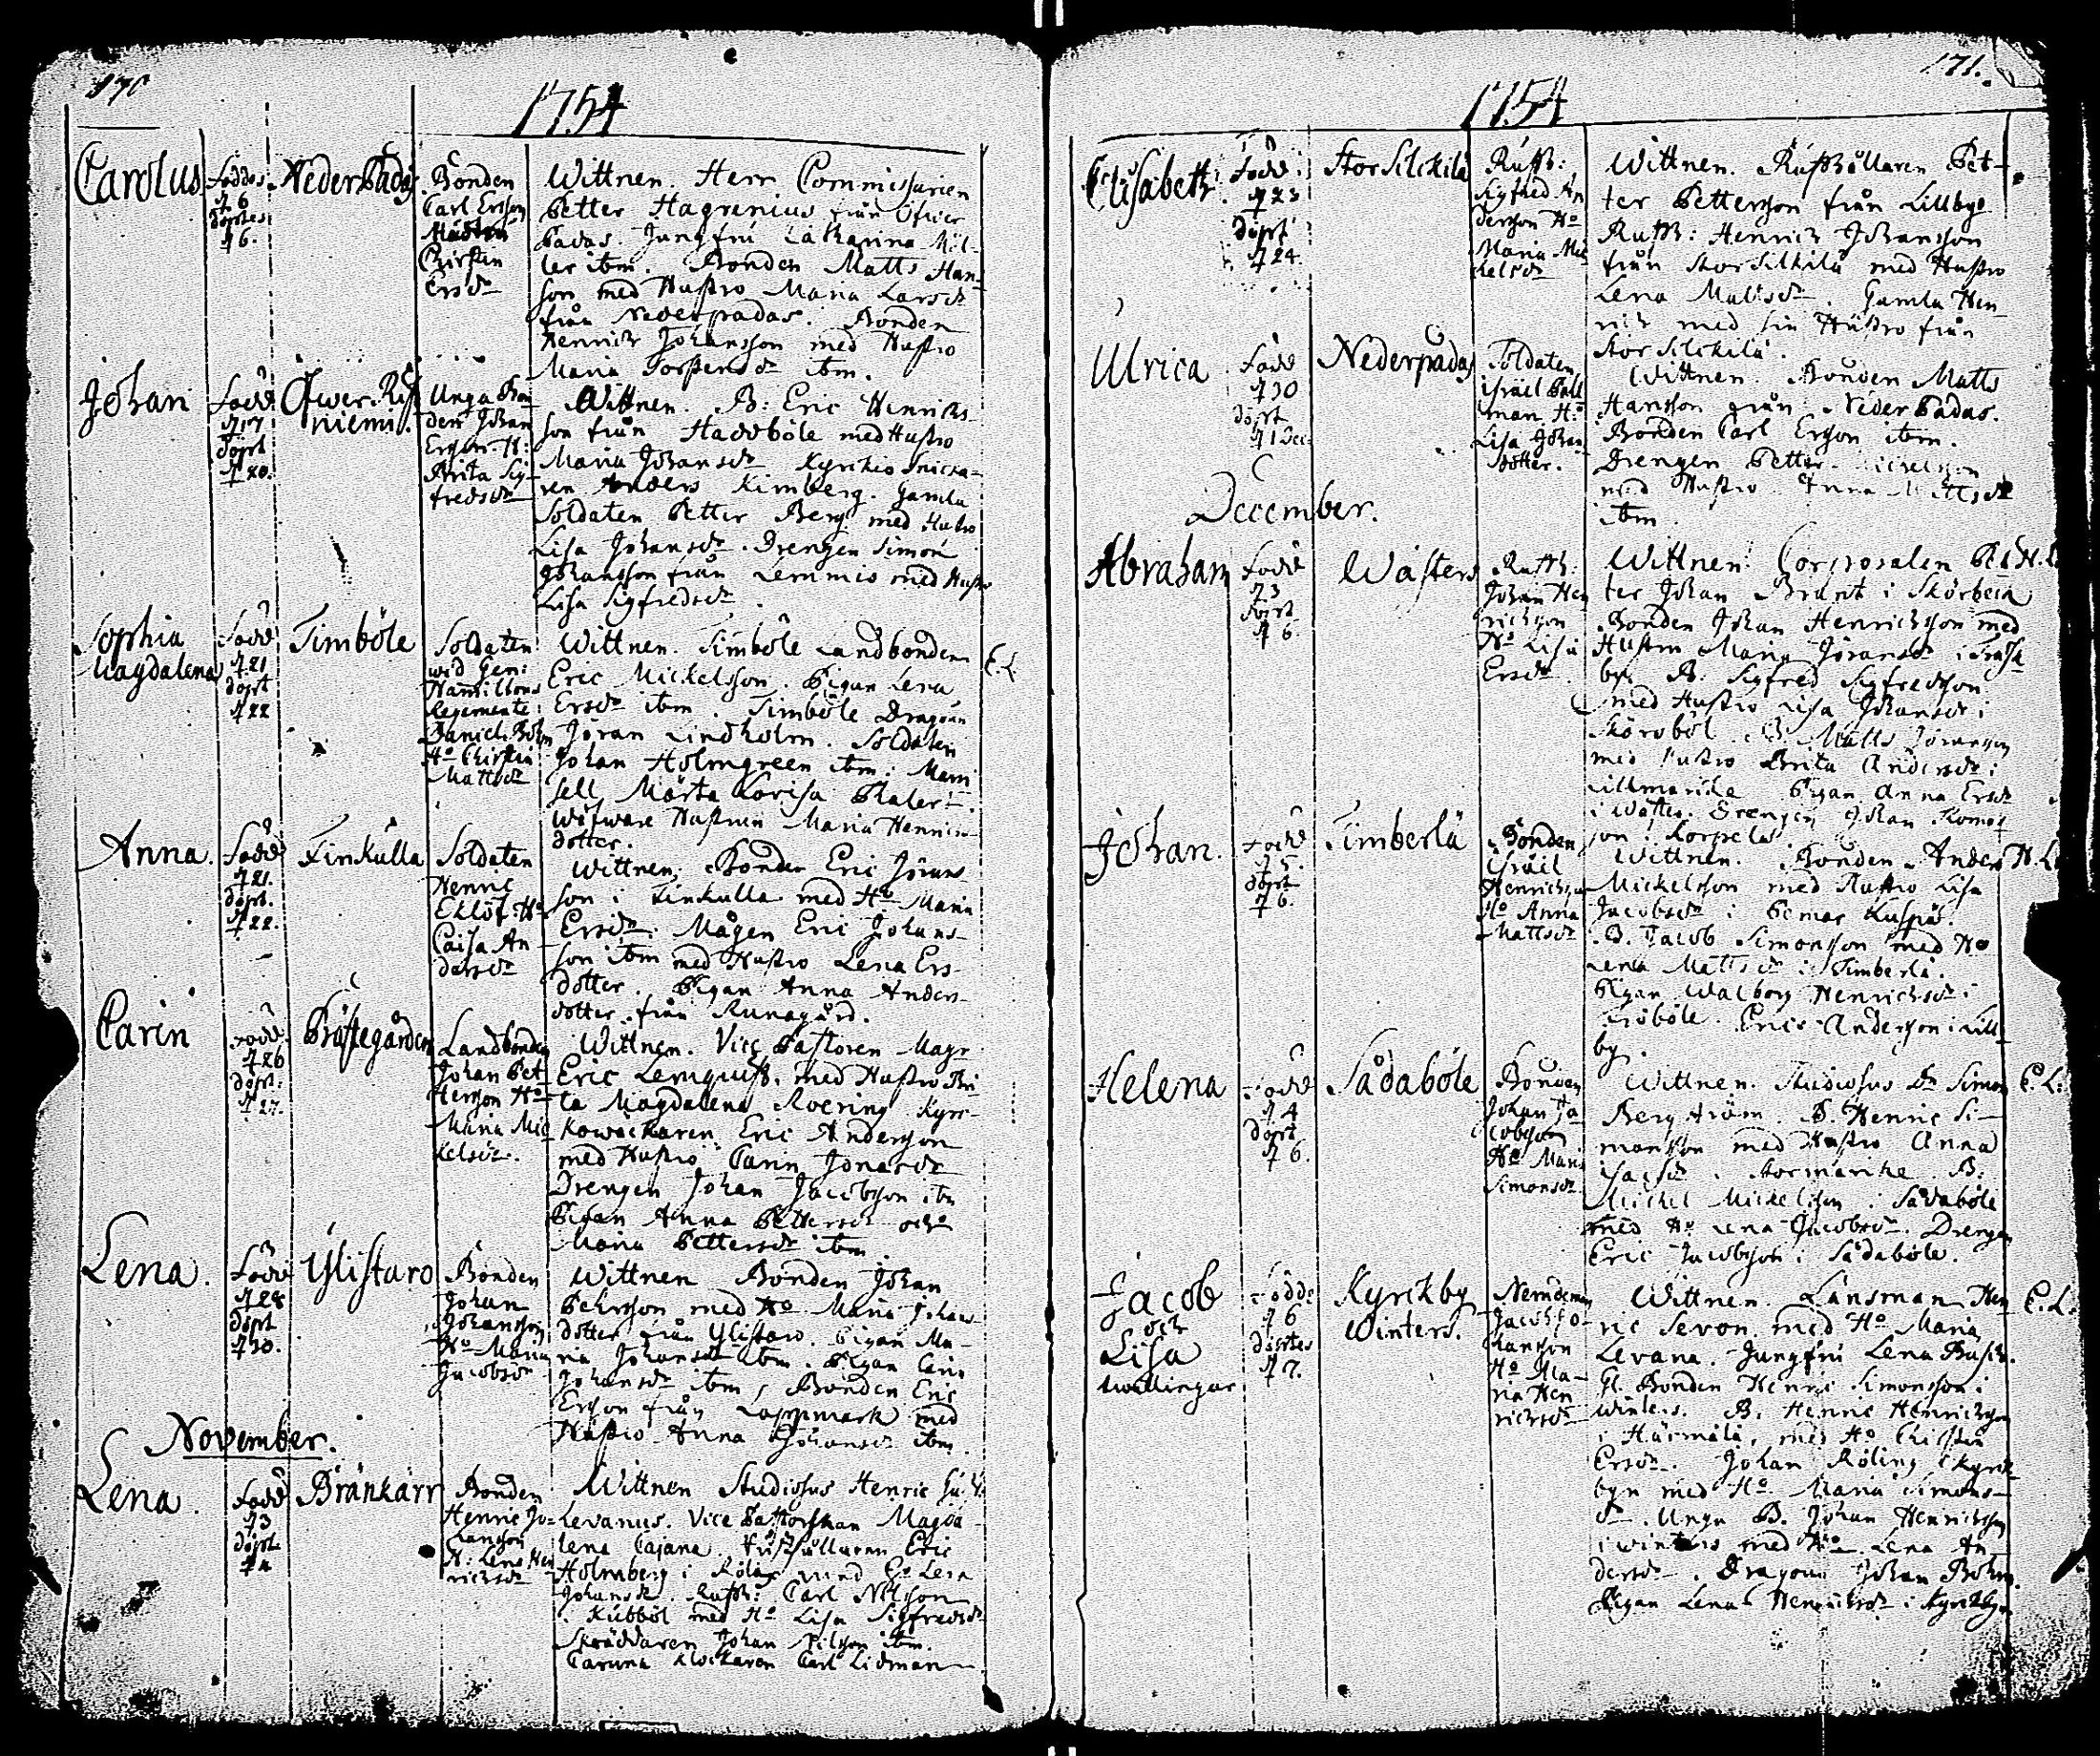 170
1754
Carolus
Föddes
d 6
döptes
d 6.
Nederpadas
Bonden
Carl Ersson
Hustro
Christin
Ersdr
Wittnen. Herr Commissarien
Petter Hagrenius från Öfwer
Padas. Jungfru Catharina Möl-
ler ibm. Bonden Matts Han-
son med Hustro Maria Larsdr
från Nederpadas. Bonden
Henrich Johansson med Hustro
Maria ibm.
Johan
Född
d 17
döpt
d 20.
Öfwer
niemi.
Unga Bon
den Johan
Ersson. H:
Brita Sig-
fredsdr
Wittnen. B: Eric Henrichs-
son från Haddböle med Hustro
Maria Johansdr Kyrckio Snicka-
ren Anders Kimberg. Gamla
Soldaten Petter Berg med Hustro
Lisa Johansdr. Drengen Simon
Johansson från Lemmis med Hustro
Lisa Sigfredsdr
Sophia
Magdalena
Född
d 21
döpt
d 22
Timböle
Soldaten
wid Gen:
Hamiltons
Regemente
Daniel Böhm
Ho Christin
Mattsdr
Wittnen. Timböle Landbonden
Eric Mickelsson. Pigan Lena
Ersdr ibm. Timböle Dragoun
Jöran Lindholm. Soldaten
Johan Holmgreen ibm: Mam
sell Märta Lovisa
Hustrun Maria Henrics-
dotter.
E. L.
Anna.
Född
d 21.
döpt.
d 22.
Finkulla
Soldaten
Henric
Eklöf. Ho
Caisa An
dersdr
Wittnen. Bonden Eric Jörans
son i Finkulla med Ho Maria
Ersdr. Mågen Eric Johans-
son ibm med Hustro Lena Ers-
dotter. Pigan Anna Anders-
dotter från Runagård.
Carin
Född
d 26
döpt.
d 27.
Prästegården
Landbonden
Johan Pet-
tersson Ho
Maria Mic
kelsdr.
Wittnen. Vice Pastoren Magr
Eric Lenquist. med Hustro Bri-
ta Magdalena Roering Kyrc-
kowäcktaren Eric Andersson
med Hustro Carin
Drengen Johan Jacobsson ibm
Pigan Anna Pettersdr och
Maria Pettersdr ibm.
Lena.
Född
d 28
döpt
d 30.
Ylistaro
Bonden
Johan
Johansson
Ho Maria
Jacobsdr
Wittnen Bonden Johan
Pehrsson med Ho Maria Johans
dotter från Ylistaro. Pigan Ma-
ria Johansdr ibm. Pigan Carin
Johansdr ibm, Bonden Eric
Ersson från Lappmark med
Hustro Anna Johansdr ibm.
November.
Lena.
Född
d 3
döpt
d 4
Bränkärr
Bonden
Henric Jo-
hansson
H: Lena Hen
richsdr
Wittnen Studiosus Henric
Levanus. Vice Pastorskan Magda-
lena Cajana. Eric
Holmberg i Röling med Ho Lena
Johansdr. Rustb: Carl Nilsson
Kubböl med Ho Lisa Sigfredsdr
Skräddaren Johan Nilsson ibm.
Caruna Klockaren Carl Lidman
171.
1754
Elisabeth.
Född
d 23
döpt
d 24.
Stor Silckilä
Rustb:
Sigfred An
dersson Ho
Maria Mic
kelsdr
Wittnen. Rusthållaren Pet-
ter Pettersson från Lillby.
Rustb: Henrich Johansson
från Stor Silckilä med Hustro
Lena Mattsdr. Gamla Hen-
rich med sin Hustro från
Stor Silckilä.
Ulrica
Född
d 30
döpt
d 1 Dec:
Nederpadas
Soldaten
Israel Pahl
man Ho
Lisa Johans
dotter.
Wittnen. Bonden Matts
Hansson från Nederpadas.
Bonden Carl Ersson ibm.
Drengen Petter Mickelsson
med Hustro Anna Mattsdr
ibm.
December.
Abraham
Född
d 3
döpt
d 6.
Wästers
Rustb:
Johan Hen
richsson
Ho Lisa
Ersdr.
Wittnen: Corporalen Pet-
ter Johan Brant i
Bonden Johan Henrichsson med
Hustru Maria Jöransdr i
by. B. Sigfred Sigfredsson
med Hustro Lisa Johansdr i
Matts Jöransson
med Hustro Brita Andersdr i
Lillmarike Pigan Anna Ersdr
i Wästers. Drengen Johan
son i Korpela.
H. L.
Johan.
Född
d 5.
döpt
d 6.
Timberlä
Bonden
Israil
Henrichsson
Ho Anna
Mattsdr
Wittnen. Bonden Anders
Mickelsson med Hustro Lisa
Jacobsdr i Pemar
B. Jacob Simonsson med Ho
Lena Mattsdr i Timberlä.
Pigan Walborg Henrichsdr i
Eric Andersson i Lill
by.
H. L.
Helena
Född
d 4
döpt
d 6.
Sådaböle
Bonden
Johan Ja
cobsson
Ho Maria
Simonsdr
Wittnen. Studiosus Dn Simon
Bergström. B. Henric Si-
monsson med Hustro Anna
Isacsdr i Stormarike B:
Michel Mickelsson i Sådaböle
med Ho Lena Jacobsdr. Drengen
Eric Jacobsson i Sådaböle.
E. L.
Jacob
och
Lisa
twillingar
Födde
d 6
döptes
d 7.
Kyrckby
Winters.
Nämdeman
Jacob Jo-
hansson
Ho Ma-
ria Hen
richsdr
Wittnen. Länsman Hen
ric Sevon med Ho Maria
Levana. Jungfru Lena
Gl. Bonden Henric Simonsson i
Winters. B. Henric Henricsson
i Härmälä, med Ho Christin
Ersdr. Johan Röling i Kyrck-
byn med Ho Maria Simons-
dr. Unga B. Johan Henrichsson
i Winters med Ho Lena An-
dersdr. Dragoun Johan Böhm.
Pigan Lena Henrichsdr i Kyrckbyn
E. L.